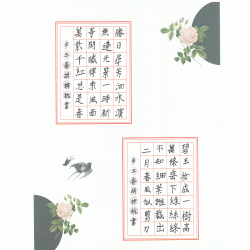 勝日尋芳泗水濱
無邊光景一時新
等閒識得東風面
萬紫千紅總是春
辛丑春書
碧玉妝成一樹高
萬條垂下綠絲絛
不知細葉誰裁出
二月春風似剪刀
辛丑春書